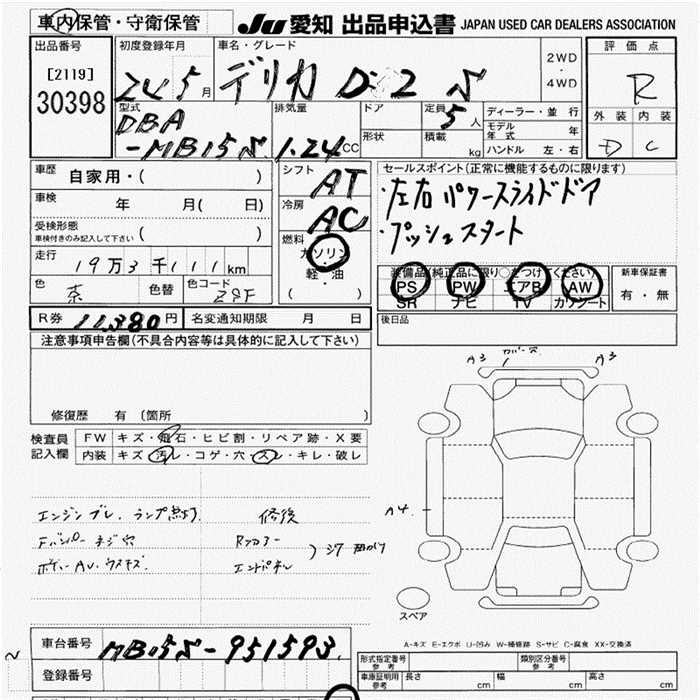 車内保管・守衛保管
JU 愛知 出品申込書 JAPAN USED CAR DEALERS ASSOCIATION
出品番号
[2119]
30398
初度登録年月
24 5月
車名・グレード
デリカ D:2 S
2WD
・
4WD
評価点
R
外装 内装
D C
型式
DBA
-MB15S
排気量
1.24CC
ドア
形状
定員
5人
積載
kg
ディーラー・並行
モデル年式 年
ハンドル 左・右
車歴
自家用・( )
車検
年 月( 日)
受検形態
車検付きのみ記入して下さい ( )
走行
19万3千111km
色
茶
色替
色コード
ZSF
シフト
AT
冷房
AC
燃料
ガソリン
・
軽・油
( )
セールスポイント(正常に機能するものに限ります)
・左右パワースライドドア
・プッシュスタート
装備品(純正品に限り○をつけてください)
PS PW エアB AW
SR ナビ TV カワシート
新車保証書
有・無
後日品
R券 11,380円
名変通知期限 月 日
注意事項申告欄(不具合内容等は具体的に記入して下さい)
修復歴 有 (箇所
検査員
記入欄
FW キズ・飛石・ヒビ割・リペア跡・X要
内装 キズ・汚レ・コゲ・穴・スレ・キレ・破レ
エンジンブレ、ランプ点灯
修復
Fバンパー ネジ穴
Rフロアー
ボディーAU・ウスキズ
エンドパネル
A3
カバー穴
A3
A4
スペア
A-キズ E-エクボ U-凹み W-補修跡 S-サビ C-腐食 XX-交換済
車台番号
MB15S-951593
登録番号
形式指定番号
参考
類別区分番号
参考
車庫証明用
参考
長さ cm
幅 cm
高さ cm